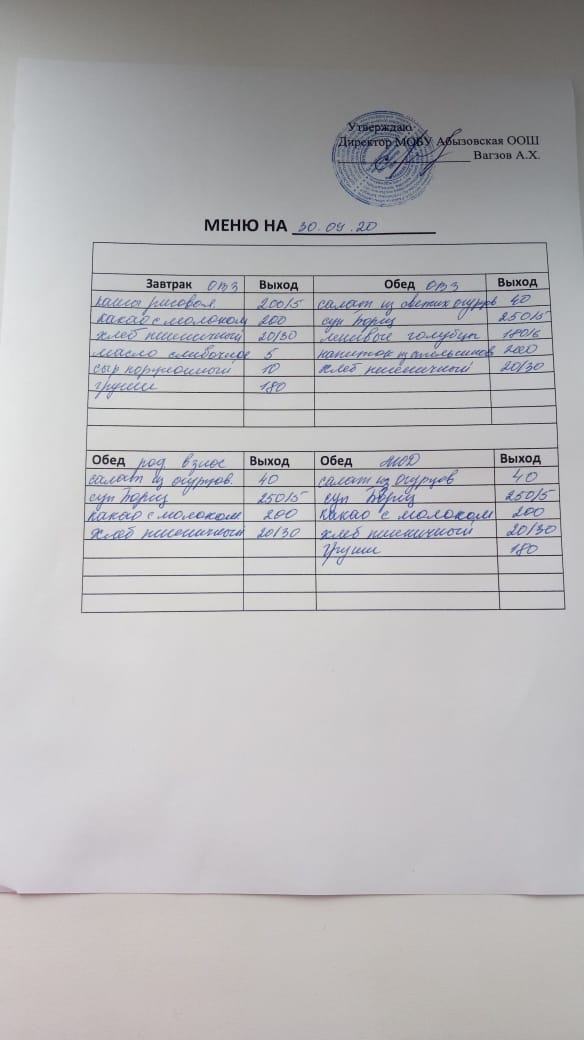 Утверждаю
Директор МОБУ Абызовская ООШ
Вагзов А.Х.
МЕНЮ НА 30.09.20
Завтрак ОВЗ Выход Обед ОВЗ Выход
каша рисовая 200/5 салат из свежих огурцов 40
какао с молоком 200 суп Борщ 250/5
хлеб пшеничный 20/30 ленивые голубцы 180/6
масло сливочное 5 напиток из апельсинов 200
сыр порционный 10 хлеб пшеничный 20/30
груши 180
Обед род взнос Выход Обед МОД Выход
салат из огурцов 40 салат из огурцов 40
суп Борщ 250/5 суп Борщ 250/5
какао с молоком 200 какао с молоком 200
хлеб пшеничный 20/30 хлеб пшеничный 20/30
груши 180